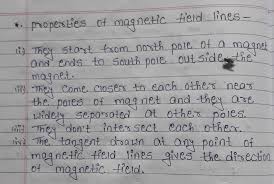 *. properties of magnetic field lines -
(i) They start from north pole of a magnet
and ends to south pole outside the
magnet.
(ii) They come closer to each other near
the poles of magnet and they are
widely separated at other poles.
(iii) They don't intersect each other.
(iv) The tangent drawn at any point of
magnetic field lines gives the direction
of magnetic field.